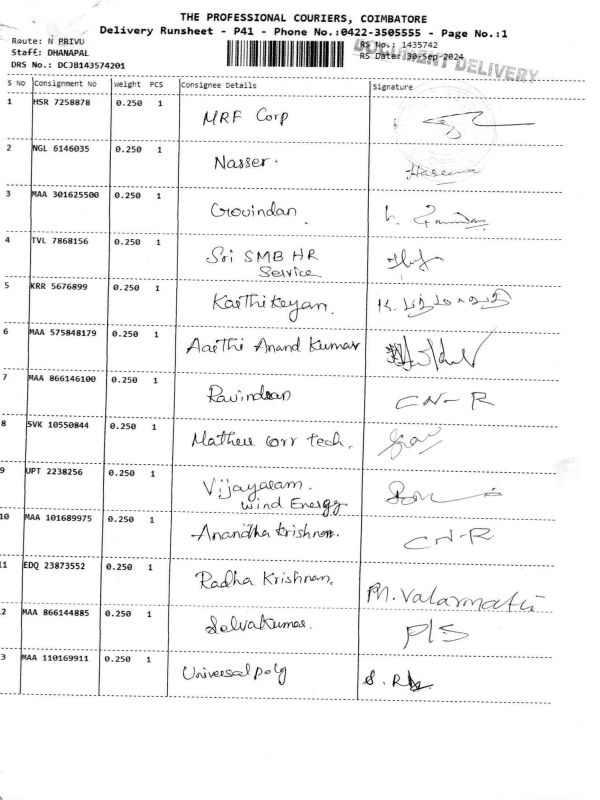 THE PROFESSIONAL COURIERS, COIMBATORE
Delivery Runsheet - P41 - Phone No.:0422-3505555 - Page No.:1
Route: N PRIVU
RS No.: 1435742
Staff: DHANAPAL
RS Date: 30-Sep-2024
DOCUMENT DELIVERY
DRS No.: DCJB143574201
S No Consignment No Weight PCS Consignee Details Signature
1 HSR 7258878 0.250 1 MRF Corp
2 NGL 6146035 0.250 1 Nasser. Haseena
3 MAA 301625500 0.250 1 Govindan
4 TVL 7868156 0.250 1 Sri SMB HR
Service
5 KRR 5676899 0.250 1 Karthikeyan.
6 MAA 575848179 0.250 1 Aarthi Anand Kumar
7 MAA 866146100 0.250 1 Ravindran CN-R
8 SVK 10550844 0.250 1 Mathew corr tech.
9 UPT 2238256 0.250 1 Vijayaram.
Wind Energy
10 MAA 101689975 0.250 1 Anandha Krishnan. CN-R
11 EDQ 23873552 0.250 1 Radha Krishnan. M. Valarmathi
2 MAA 866144885 0.250 1 Selvakumar. P/S
3 MAA 110169911 0.250 1 Universal poly